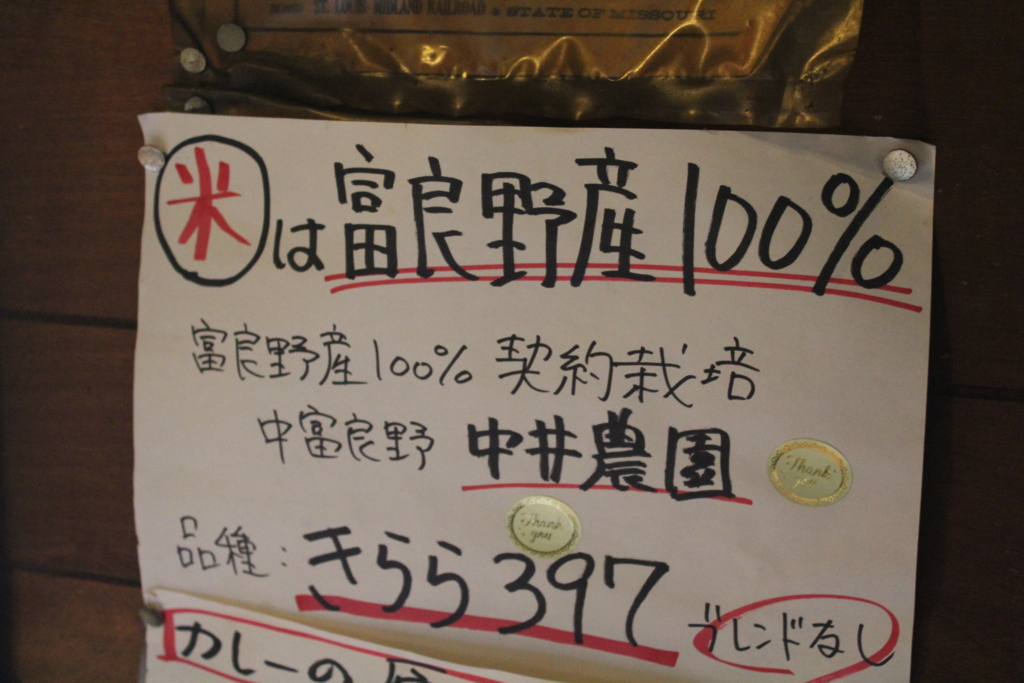 ST. LOUIS MIDLAND RAILROAD & STATE OF MISSOURI
米は富良野産100%
富良野産100% 契約栽培
中富良野 中井農園
Thank you
Thank you
品種:きらら397
ブレンドなし
カレーの